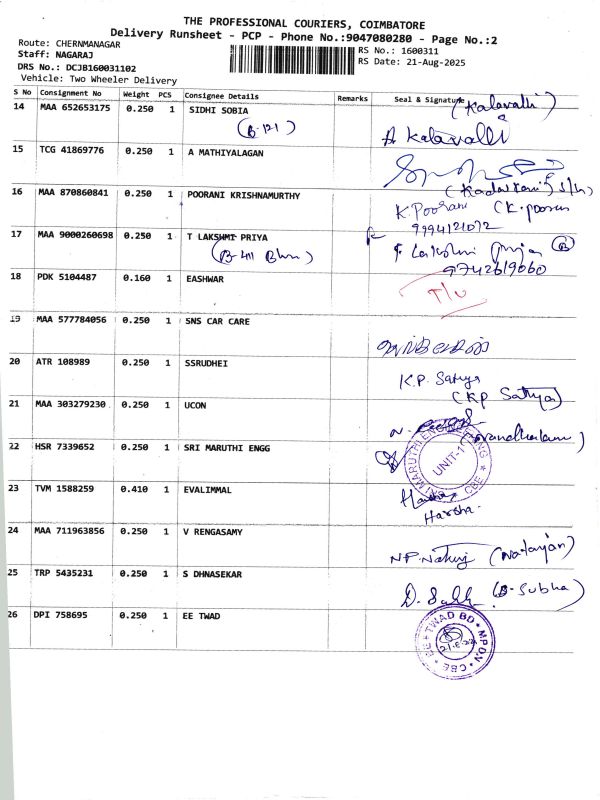 THE PROFESSIONAL COURIERS, COIMBATORE
Delivery Runsheet - PCP - Phone No.:9047080280 - Page No.:2
Route: CHERNMANAGAR
Staff: NAGARAJ
DRS No.: DCJB160031102
Vehicle: Two Wheeler Delivery
RS No.: 1600311
RS Date: 21-Aug-2025
S No Consignment No Weight PCS Consignee Details Remarks Seal & Signature
14 MAA 652653175 0.250 1 SIDHI SOBIA (Kalavalli)
(B-121) A Kalavalli
15 TCG 41869776 0.250 1 A MATHIYALAGAN
16 MAA 870860841 0.250 1 POORANI KRISHNAMURTHY
K. Poorani (K. poorani
9994121072
17 MAA 9000260698 0.250 1 T LAKSHMI PRIYA
(B-411 Bhm) T. Lakshmi priya
9742619060
18 PDK 5104487 0.160 1 EASHWAR
T/U
19 MAA 577784056 0.250 1 SNS CAR CARE
20 ATR 108989 0.250 1 SSRUDHEI
K.P. Satya
(KP Sathya)
21 MAA 303279230 0.250 1 UCON
22 HSR 7339652 0.250 1 SRI MARUTHI ENGG
UNIT-1
CBE
23 TVM 1588259 0.410 1 EVALIMMAL
Harsha
Harsha.
24 MAA 711963856 0.250 1 V RENGASAMY
N.P. (Natarajan)
25 TRP 5435231 0.250 1 S DHNASEKAR
(D. Subha)
26 DPI 758695 0.250 1 EE TWAD
TWAD BD MPDN CBE